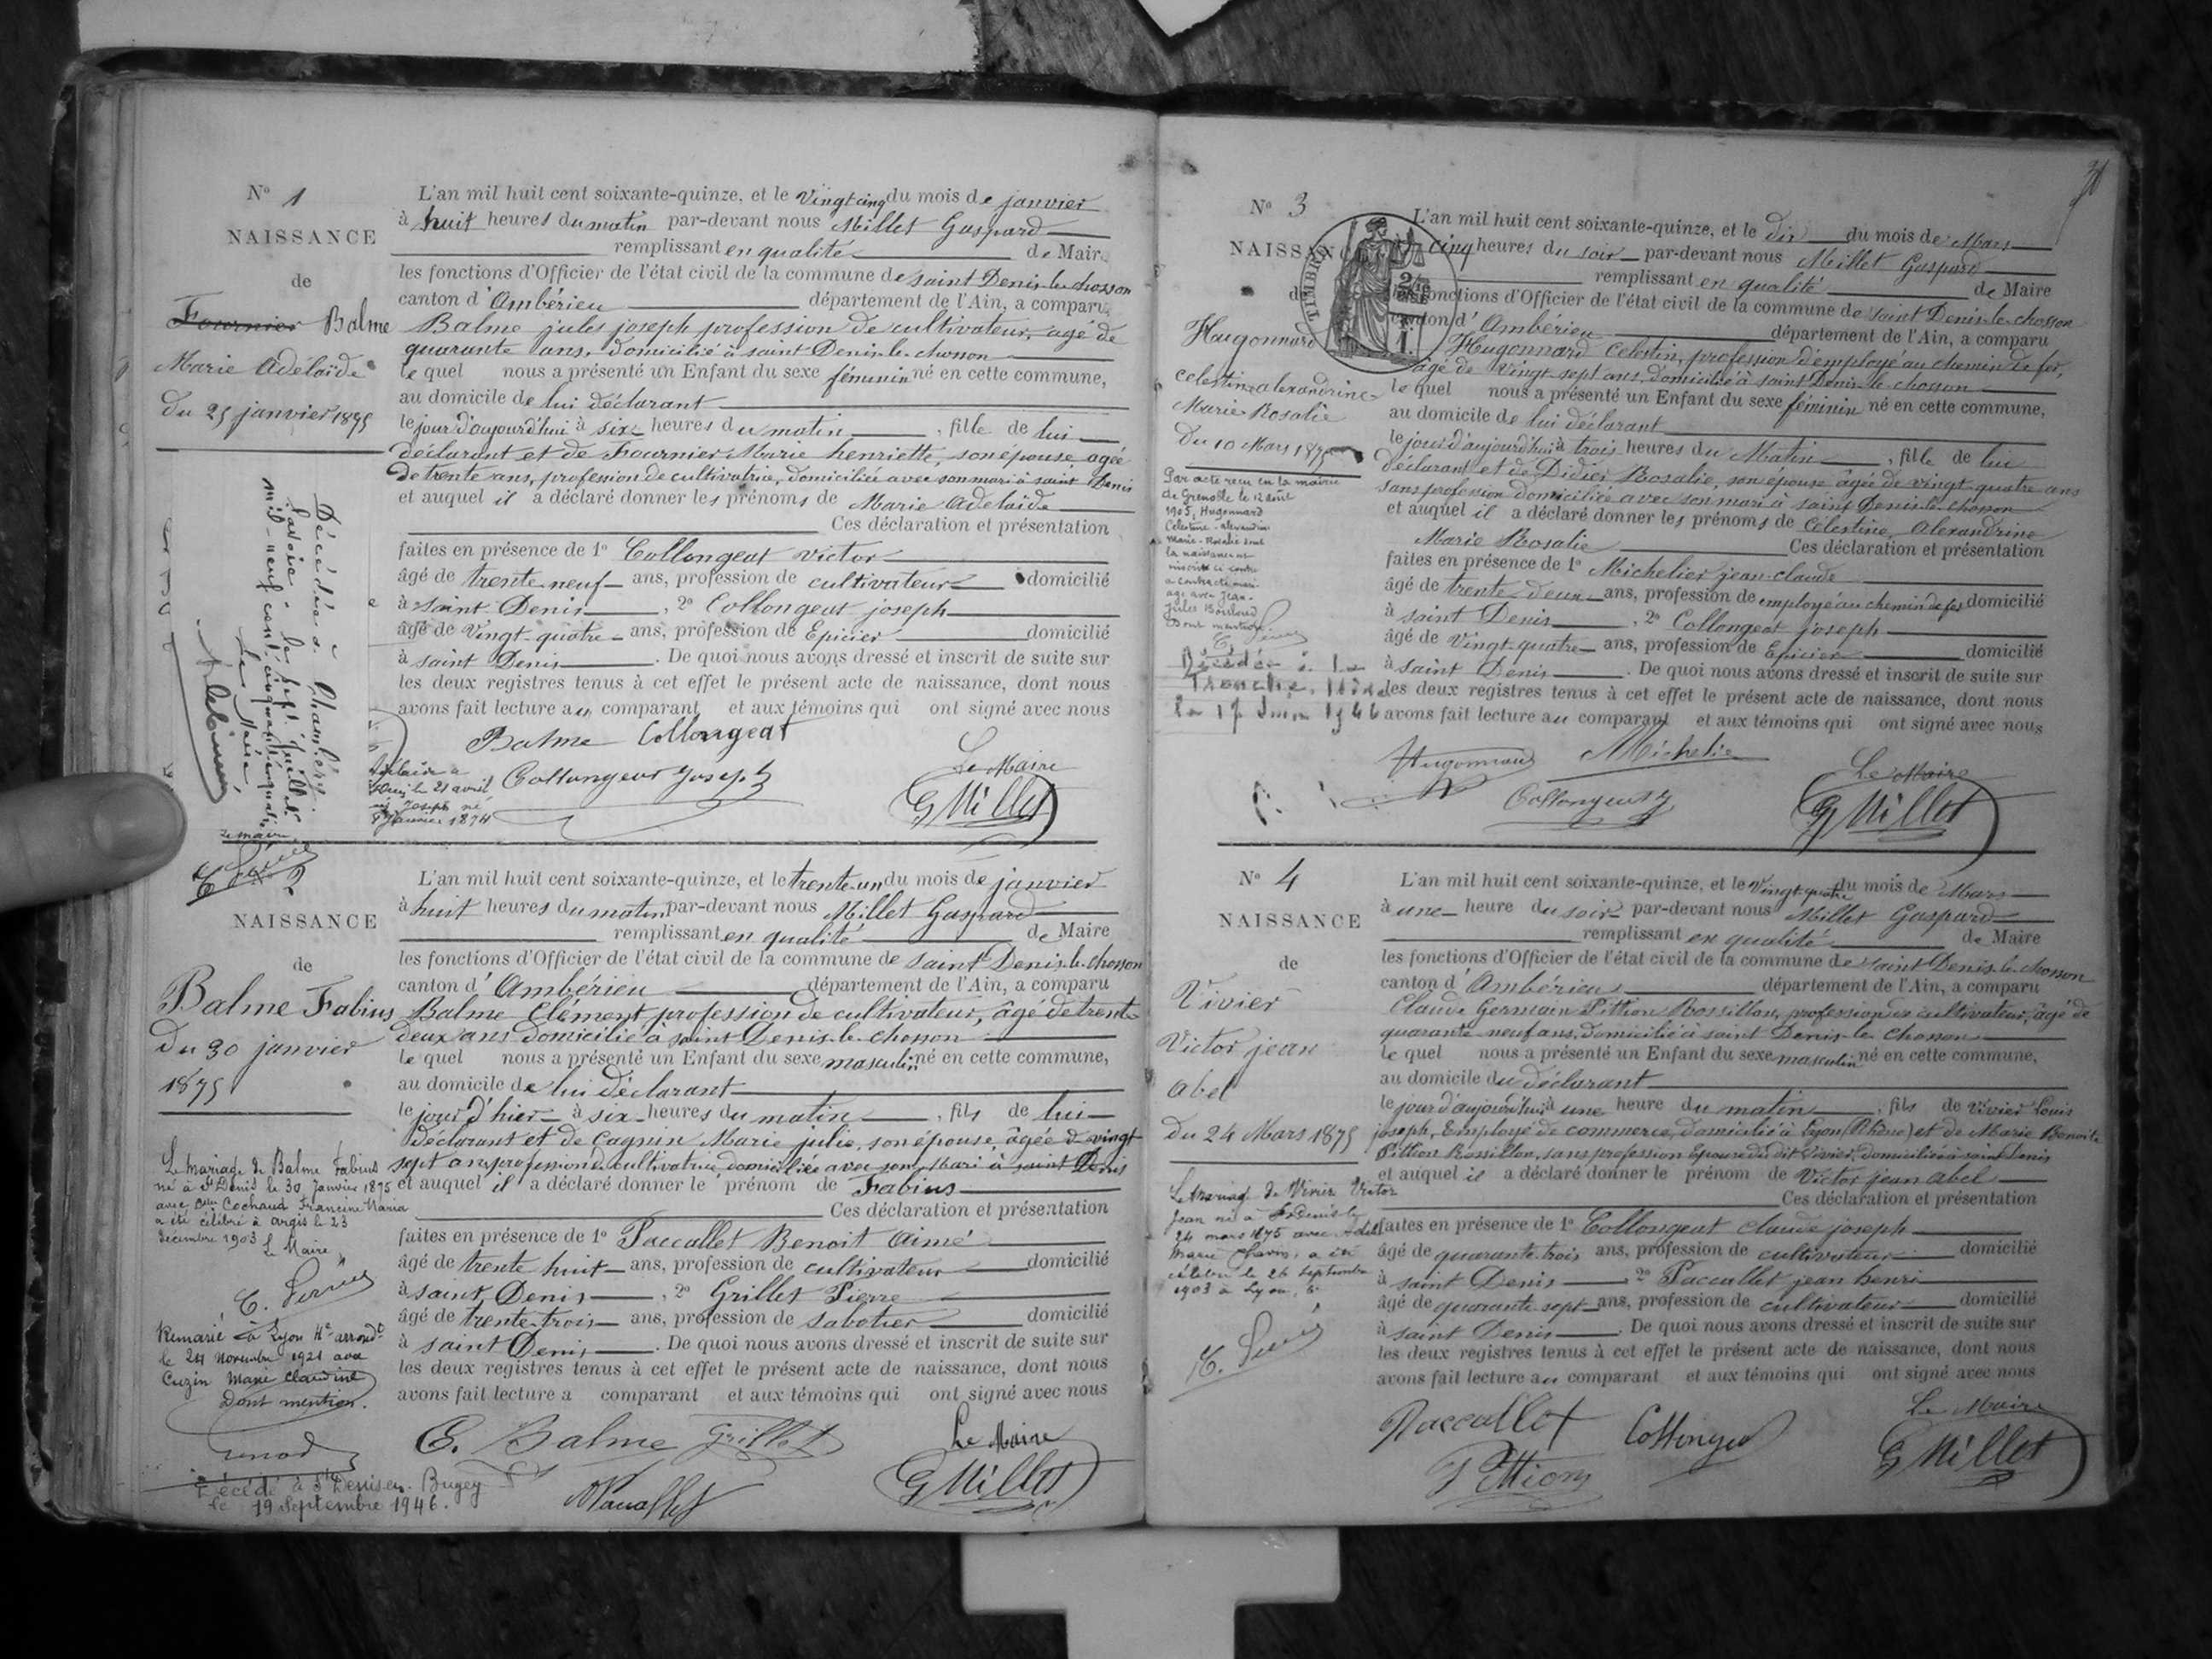 N° 1
NAISSANCE
de
Fournier Balme
Marie Adélaïde
du 25 janvier 1875
Décédée à Chambéry
Savoie le sept juillet
mil-neuf cent cinquante
Le Maire,
L'an mil huit cent soixante-quinze, et le Vingt cinq du mois de janvier
à huit heures du matin par-devant nous Millet Gaspard
remplissant en qualité de Maire
les fonctions d'Officier de l'état civil de la commune de saint Denis-le-chosson
canton d'Ambérieu département de l'Ain, a comparu
Balme jules joseph profession de cultivateur, agé de
quarante ans, domicilié à saint Denis-le-chosson
le quel nous a présenté un Enfant du sexe féminin né en cette commune,
au domicile de lui déclarant
le jour d'aujourd'hui à six heures du matin, fille de lui
déclarant et de Fournier Marie henriette, son épouse agée
de trente ans, profession de cultivatrice, domiciliée avec son mari à saint Denis
et auquel il a déclaré donner les prénoms de Marie Adelaïde
Ces déclaration et présentation
faites en présence de 1° Collongeat victor
âgé de trente-neuf ans, profession de cultivateur domicilié
à saint Denis, 2° Collongeat joseph
âgé de Vingt-quatre ans, profession de Epicier domicilié
à saint Denis. De quoi nous avons dressé et inscrit de suite sur
les deux registres tenus à cet effet le présent acte de naissance, dont nous
avons fait lecture au comparant et aux témoins qui ont signé avec nous
Balme Collongeat
Collongeat Joseph
Le Maire
G Millet
21 avril
Joseph né
Janvier 1874
Le maire
NAISSANCE
de
Balme Fabius
Du 30 janvier
1875
Le mariage de Balme Fabius
né à St Denis le 30 Janvier 1875
avec Cochaud Francine Maria
a été célébré à Argis le 23
décembre 1903 Le Maire
Remarié à Lyon 4e arrondt
le 24 novembre 1921 avec
Cuzin Marie Claudine
Dont mention.
Décédé à St Denis en Bugey
le 19 Septembre 1946.
L'an mil huit cent soixante-quinze, et le trente-un du mois de janvier
à huit heures du matin par-devant nous Millet Gaspard
remplissant en qualité de Maire
les fonctions d'Officier de l'état civil de la commune de saint Denis-le-chosson
canton d'Ambérieu département de l'Ain, a comparu
Balme Clément profession de cultivateur, âgé de trente
deux ans domicilié à saint Denis-le-chosson
le quel nous a présenté un Enfant du sexe masculin né en cette commune,
au domicile de lui déclarant
le jour d'hier à six heures du matin, fils de lui
déclarant et de Cagnin Marie julie, son épouse, âgée de vingt
sept ans, profession de cultivatrice domiciliée avec son Mari à saint Denis
et auquel il a déclaré donner le prénom de Fabius
Ces déclaration et présentation
faites en présence de 1° Paccallet Benoit Aimé
âgé de trente huit ans, profession de cultivateur domicilié
à saint Denis, 2° Grillet Pierre
âgé de trente-trois ans, profession de sabotier domicilié
à saint Denis. De quoi nous avons dressé et inscrit de suite sur
les deux registres tenus à cet effet le présent acte de naissance, dont nous
avons fait lecture a comparant et aux témoins qui ont signé avec nous
C. Balme Grillet
Le Maire
G Millet
N° 3
NAISSANCE
de
Hugonnard
Celestine alexandrine
Marie Rosalie
Du 10 Mars 1875
Par acte reçu en la mairie
de Grenoble le 12 août
1905, Hugonnard
Célestine-alexandrine
Marie-Rosalie dont
la naissance est
inscrite ci contre
a contracté mari-
age avec Jean-
Jules
Dont mention.
Décédée à La
Tronche, Isère
le 17 Juin 1946
TIMBRE
L'an mil huit cent soixante-quinze, et le dix du mois de Mars
cinq heures du soir par-devant nous Millet Gaspard
remplissant en qualité de Maire
les fonctions d'Officier de l'état civil de la commune de saint Denis-le-chosson
canton d'Ambérieu département de l'Ain, a comparu
Hugonnard Celestin, profession d'employé au chemin de fer,
âgé de Vingt-sept ans, domicilié à saint Denis-le-chosson
le quel nous a présenté un Enfant du sexe féminin né en cette commune,
au domicile de lui déclarant
le jour d'aujourd'hui à trois heures du Matin, fille de lui
déclarant et de Didier Rosalie, son épouse âgée de vingt-quatre ans
sans profession domiciliée avec son mari à saint Denis-le-chosson
et auquel il a déclaré donner les prénoms de Célestine, Alexandrine
Marie Rosalie Ces déclaration et présentation
faites en présence de 1° Michelier jean-claude
âgé de trente-deux ans, profession de employé au chemin de fer domicilié
à saint Denis, 2° Collongeat joseph
âgé de Vingt-quatre ans, profession de Epicier domicilié
à saint Denis. De quoi nous avons dressé et inscrit de suite sur
les deux registres tenus à cet effet le présent acte de naissance, dont nous
avons fait lecture au comparant et aux témoins qui ont signé avec nous
Hugonnard Michelier
Collongeat
Le Maire
G Millet
N° 4
NAISSANCE
de
Vivier
Victor jean
abel
Du 24 Mars 1875
Le mariage de Vivier Victor
Jean né à St Denis le
24 mars 1875 avec
Marie a été
célébré le 26 Septembre
1903 à Lyon,
L'an mil huit cent soixante-quinze, et le Vingt-quatre du mois de Mars
à une heure du soir par-devant nous Millet Gaspard
remplissant en qualité de Maire
les fonctions d'Officier de l'état civil de la commune de saint Denis-le-chosson
canton d'Ambérieu département de l'Ain, a comparu
Claude Germain Pittion Rossillon, profession de cultivateur, âgé de
quarante neuf ans, domicilié à saint Denis-le-Chosson
le quel nous a présenté un Enfant du sexe masculin né en cette commune,
au domicile du déclarant
le jour d'aujourd'hui à une heure du matin, fils de Vivier Louis
joseph, Employé de commerce, domicilié à Lyon (Rhône) et de Marie Benoite
Pittion Rossillon, sans profession épouse du dit Vivier, domiciliée à saint Denis
et auquel il a déclaré donner le prénom de Victor jean abel
Ces déclaration et présentation
faites en présence de 1° Collongeat Claude joseph
âgé de quarante-trois ans, profession de cultivateur domicilié
à saint Denis 2° Paccallet jean henri
âgé de quarante-sept ans, profession de cultivateur domicilié
à saint Denis. De quoi nous avons dressé et inscrit de suite sur
les deux registres tenus à cet effet le présent acte de naissance, dont nous
avons fait lecture au comparant et aux témoins qui ont signé avec nous
Paccallet Collongeat
Pittion
Le Maire
G Millet